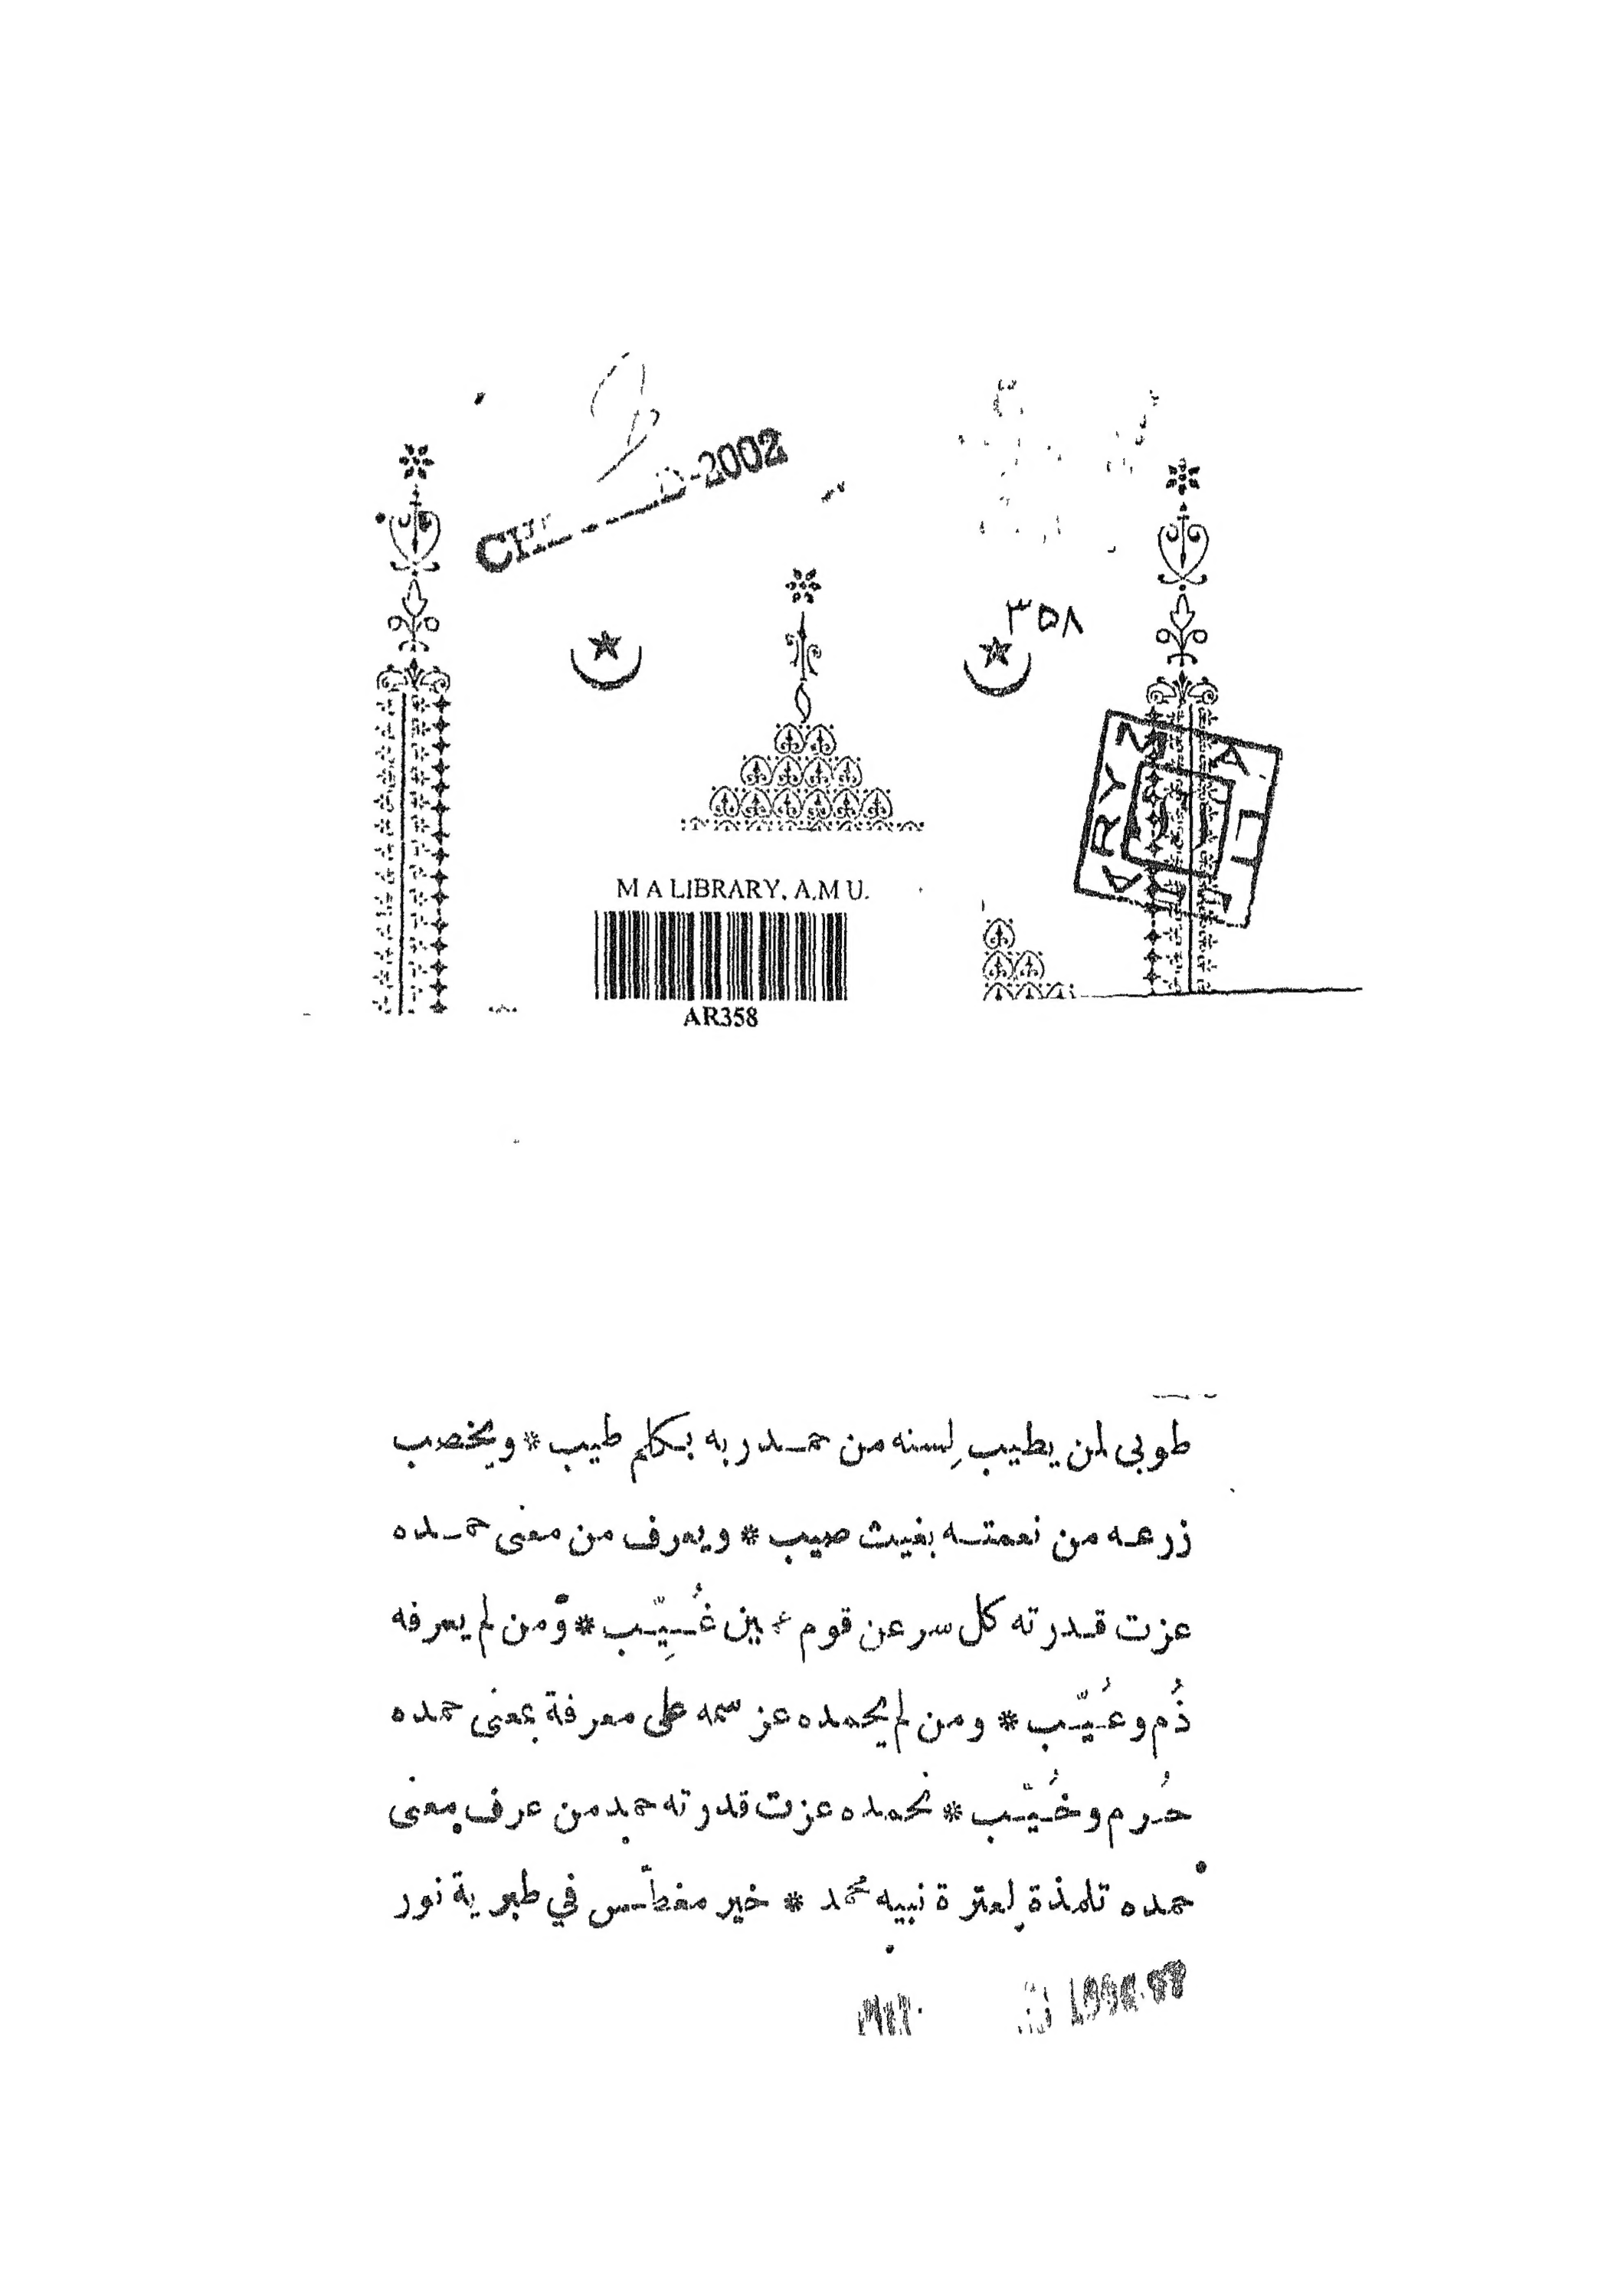 D-2002
٣٥٨
M A LIBRARY, A.M U.
AR358
طوبى لمن يطيب لِسنه من حمد ربه بكلم طيب * ويخصب
زرعه من نعمته بغيث صيب * ويعرف من معنى حمده
عزت قدرته كل سر عن قوم غُيِّب * ومن لم يعرفه
ذُم وعُيّب * ومن لم يحمده عز سمه على معرفة بمعنى حمده
حُرم وخُيّب * نحمده عزت قدرته حمد من عرف معنى
حمده تلمذة لِعترة نبيه محمد * خير مغطس في طبرية نور